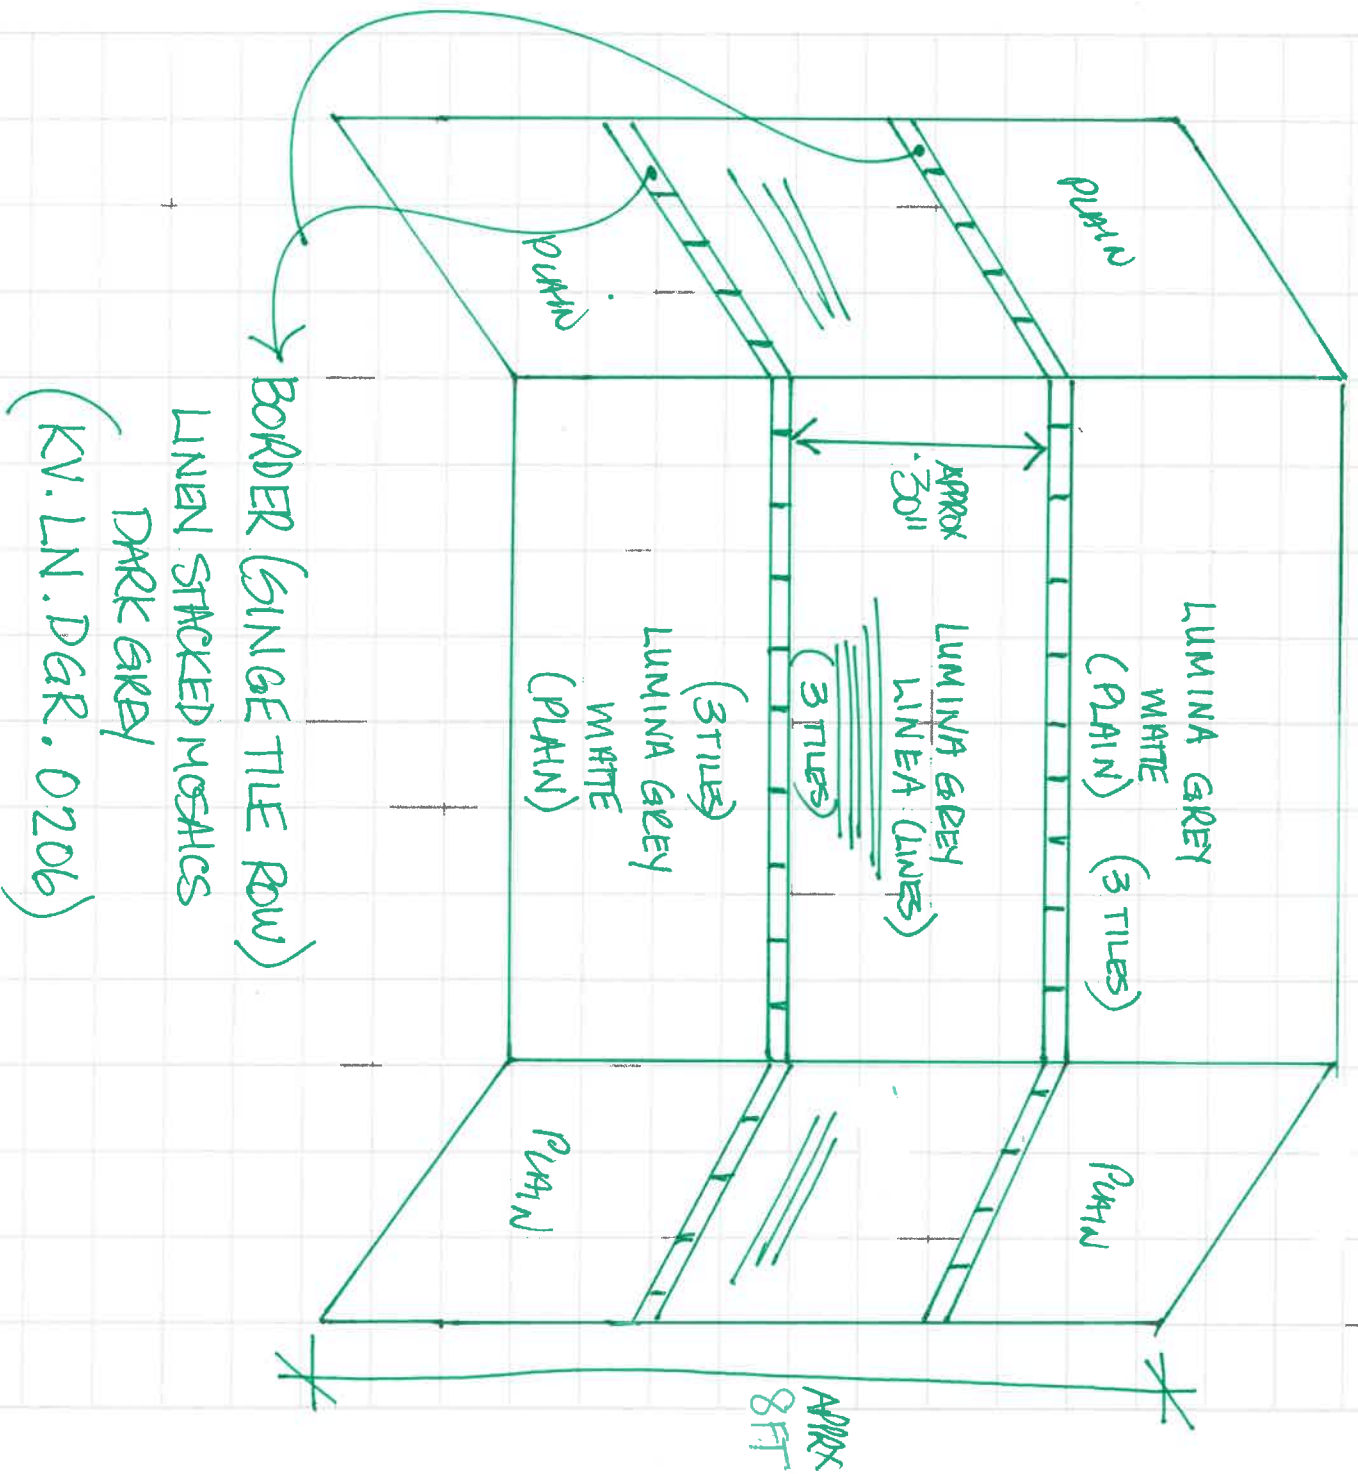 PLAIN
LUMINA GREY
MATTE
(PLAIN) (3 TILES)
PLAIN
APPROX
30"
LUMINA GREY
LINEA (LINES)
(3 TILES)
PLAIN
(3 TILES)
LUMINA GREY
MATTE
(PLAIN)
PLAIN
APPRX
8 FT
BORDER (SINGE TILE ROW)
LINEN STACKED MOSAICS
DARK GREY
(KV.LN.DGR.0206)